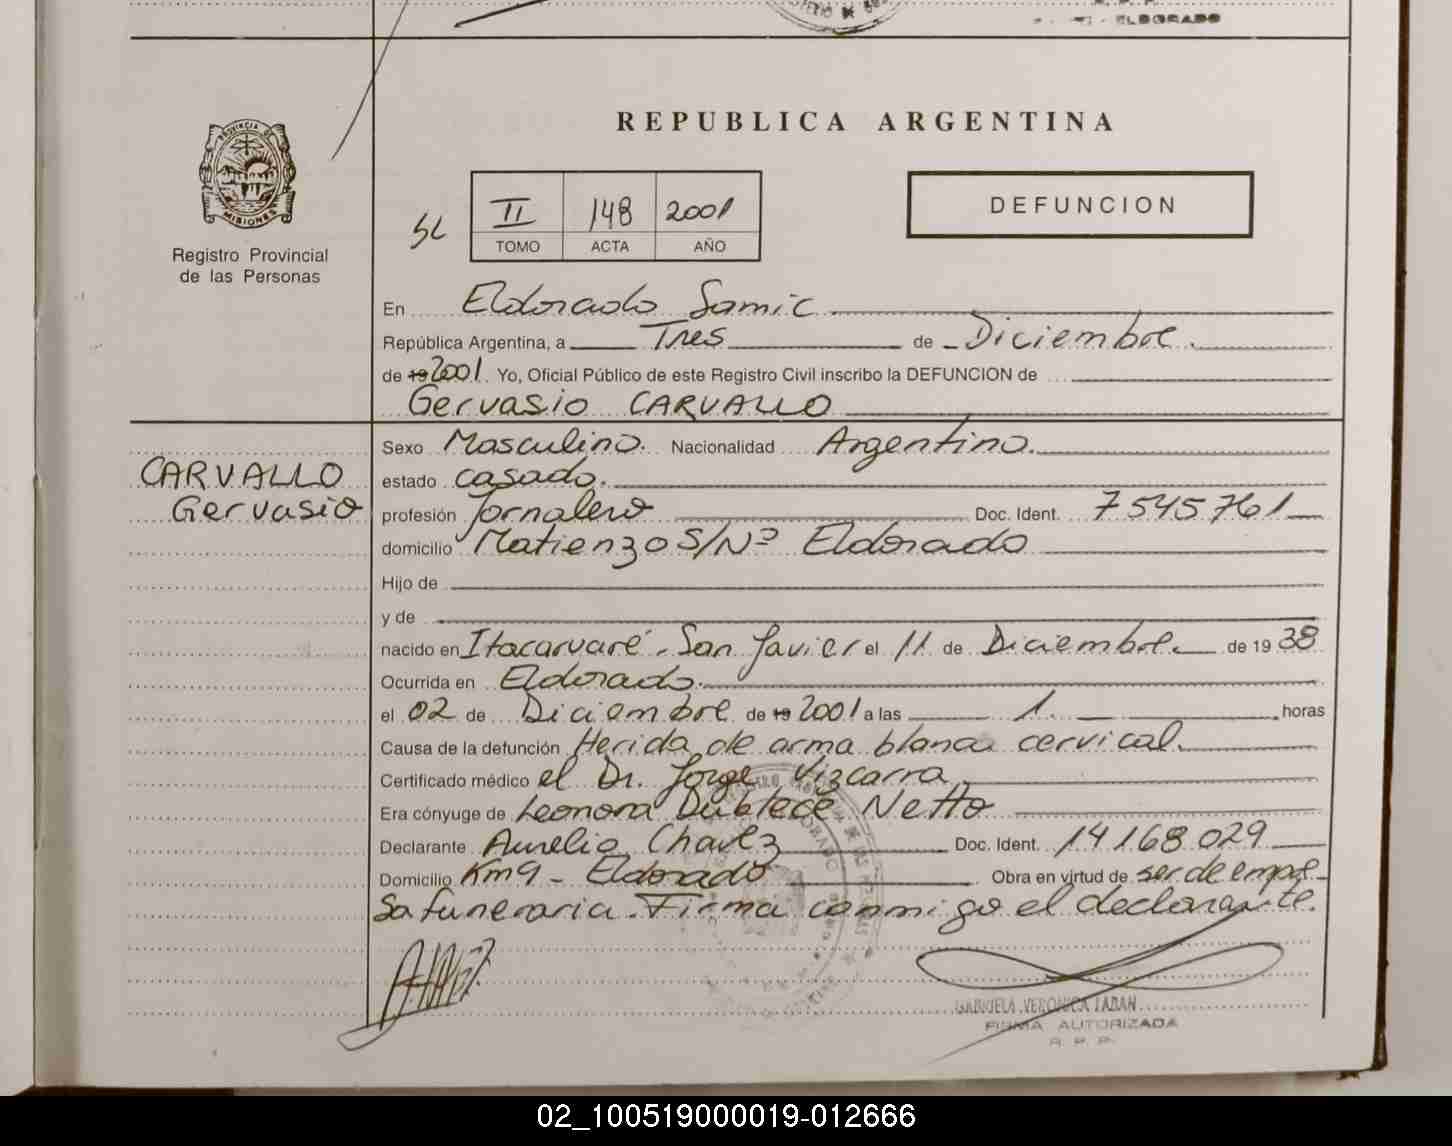 ELDORADO
REPUBLICA ARGENTINA
PROVINCIA DE
MISIONES
Registro Provincial
de las Personas
II 148 2001
TOMO ACTA AÑO
DEFUNCION
En Eldorado Samic
República Argentina, a Tres de Diciembre.
de 19 2001 Yo, Oficial Público de este Registro Civil inscribo la DEFUNCION de
Gervasio CARVALLO
CARVALLO
Gervasio
Sexo Masculino. Nacionalidad Argentino.
estado casado.
profesión Jornalero Doc. Ident. 7545761
domicilio Matienzo S/Nº Eldorado
Hijo de
y de
nacido en Itacaruaré - San Javier el 11 de Diciembre. de 1938
Ocurrida en Eldorado.
el 02 de Diciembre de 19 2001 a las 1. horas
Causa de la defunción Herida de arma blanca cervical.
Certificado médico el Dr. Jorge Vizcarra
Era cónyuge de Leonora Netto
Declarante Aurelio Chavez Doc. Ident. 14168029
Domicilio Km9 - Eldorado Obra en virtud de ser de empre-
sa funeraria. Firma conmigo el declarante.
GABRIELA VERONICA
FIRMA AUTORIZADA
R. P. P.
02_100519000019-012666